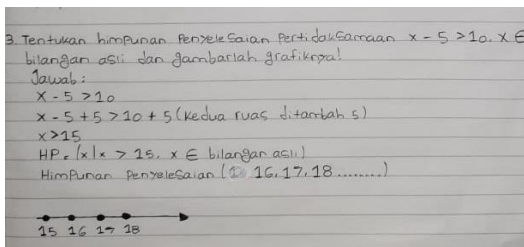 3. Tentukan himpunan Penyelesaian Pertidaksamaan x - 5 > 10. x ∈
bilangan asli dan gambarlah grafiknya!
Jawab :
x - 5 > 10
x - 5 + 5 > 10 + 5 (kedua ruas ditambah 5)
x > 15
HP = {x|x > 15, x ∈ bilangan asli}
Himpunan Penyelesaian ( 16, 17, 18 ........)
15 16 17 18